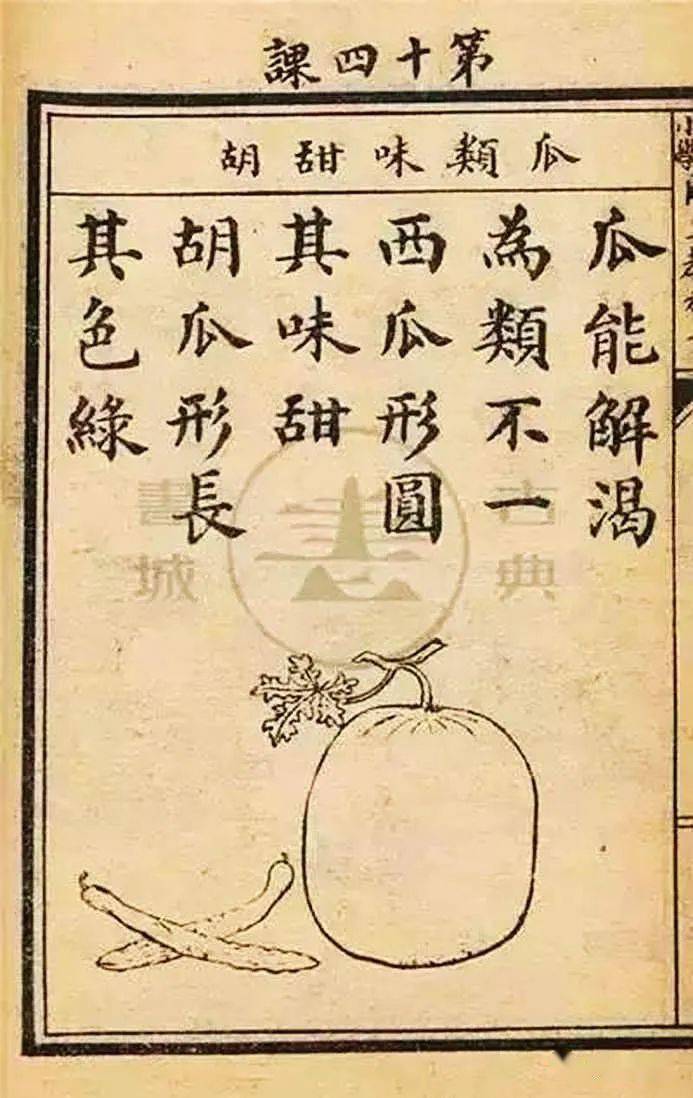 第十四課
瓜類味甜胡
瓜能解渴
為類不一
西瓜形圓
其味甜
胡瓜形長
其色綠
古典
書城